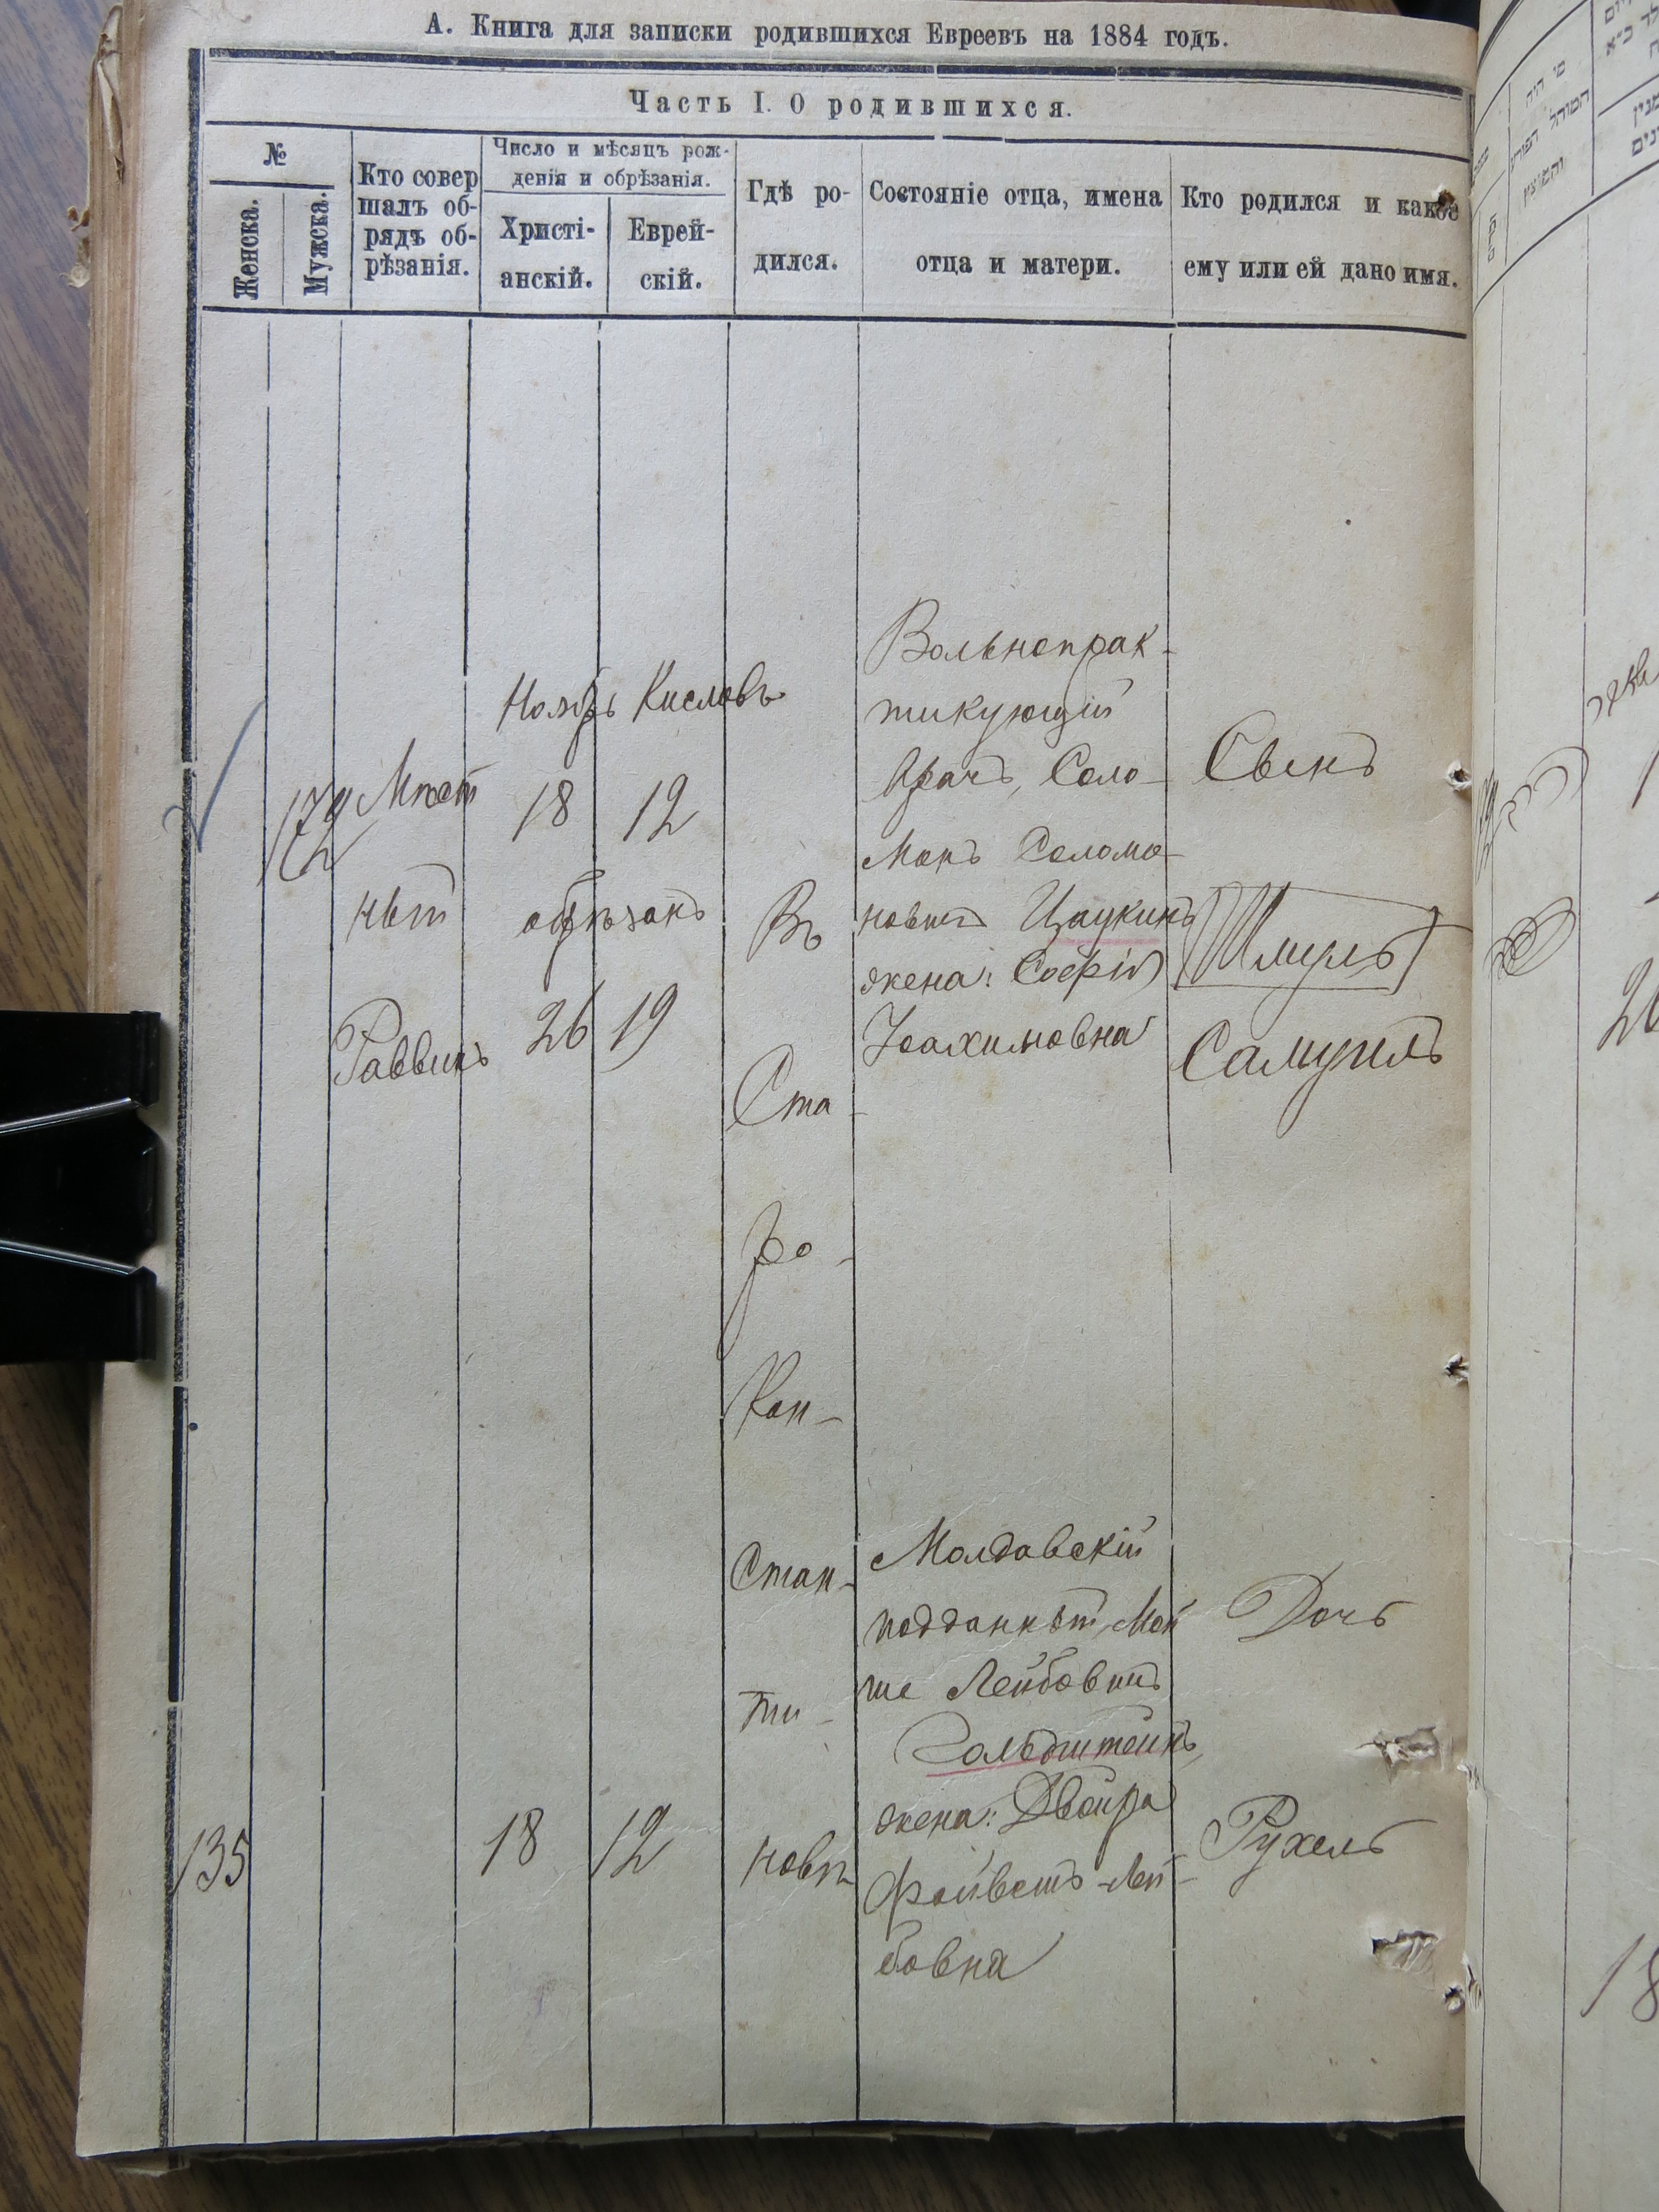 А. Книга для записки родившихся Евреевъ на 1884 годъ.
Часть I. О родившихся.
№
Женска.
Мужска.
Кто совер
шалъ об-
рядъ об-
рѣзанія.
Число и мѣсяцъ рож-
денія и обрѣзанія.
Христі-
анскій.
Еврей-
скій.
Гдѣ ро-
дился.
Состояніе отца, имена
отца и матери.
Кто родился и какое
ему или ей дано имя.
Мѣст
ный
Раввинъ
Ноябрь Кислевъ
18 12
обрѣзанъ
26 19
Въ
Ста-
ро-
Кон-
стан-
ти-
новѣ
Вольнопрак-
тикующій
врачъ, Соло-
монъ Соломо-
новичъ Цаукинъ
жена: Софія
Іоахимовна
Сынъ
Шмуль
Самуилъ
135
18 12
Молдавскій
подданный Мой
ше Лейбовичъ
Гольдштейнъ,
жена: Двойра
Фейвешъ-Лей-
бовна
Дочь
Рухель